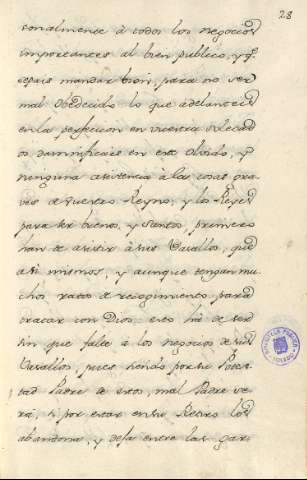 28
sonalmente à todos los negocios
importantes al bien publico, y q.e
sepais mandar bien, para no ser
mal Obedecido lo que adelantais
en la perfeccion en vuestra
os damnificais en este Olvido, y
ninguna asistencia à las cosas gra-
ves de vuestro Reyno; y los Reyes
para ser buenos, y Santos, primero
han de asistir à sus Vasallos, que
asi mismos, y aunque tengan mu-
chos ratos de recogimiento para
tratar con Dios esto hà de ser
sin que falte à los negocios de sus
Vasallos, pues siendo por su Potes-
tad Padre de estos, mal Padre se-
rà, si por estar en su Retiro los
abandona, y deja entre las gar-